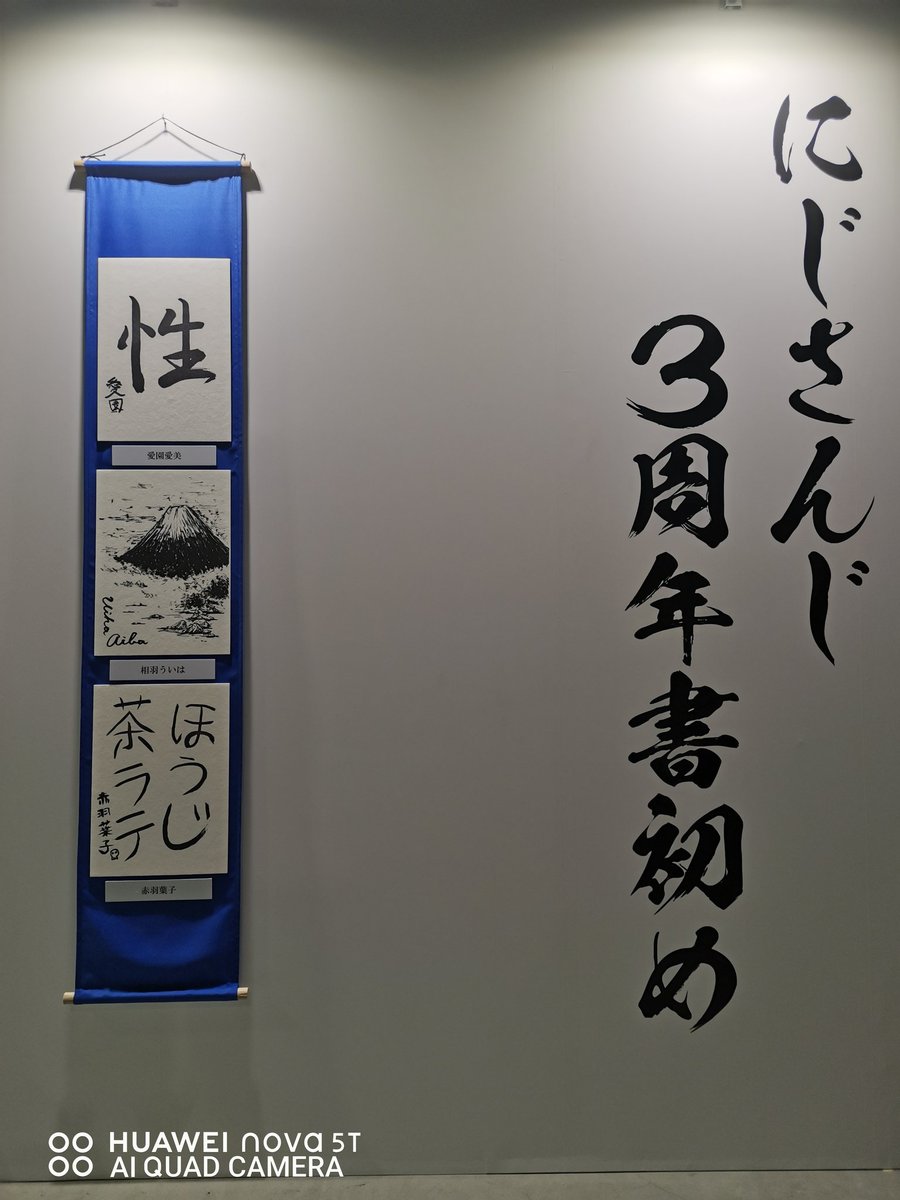 にじさんじ
3周年書初め
性
愛園
愛園愛美
Uiha
Aiba
相羽ういは
ほうじ
茶ラテ
赤羽葉子
赤羽葉子
HUAWEI nova 5T
AI QUAD CAMERA